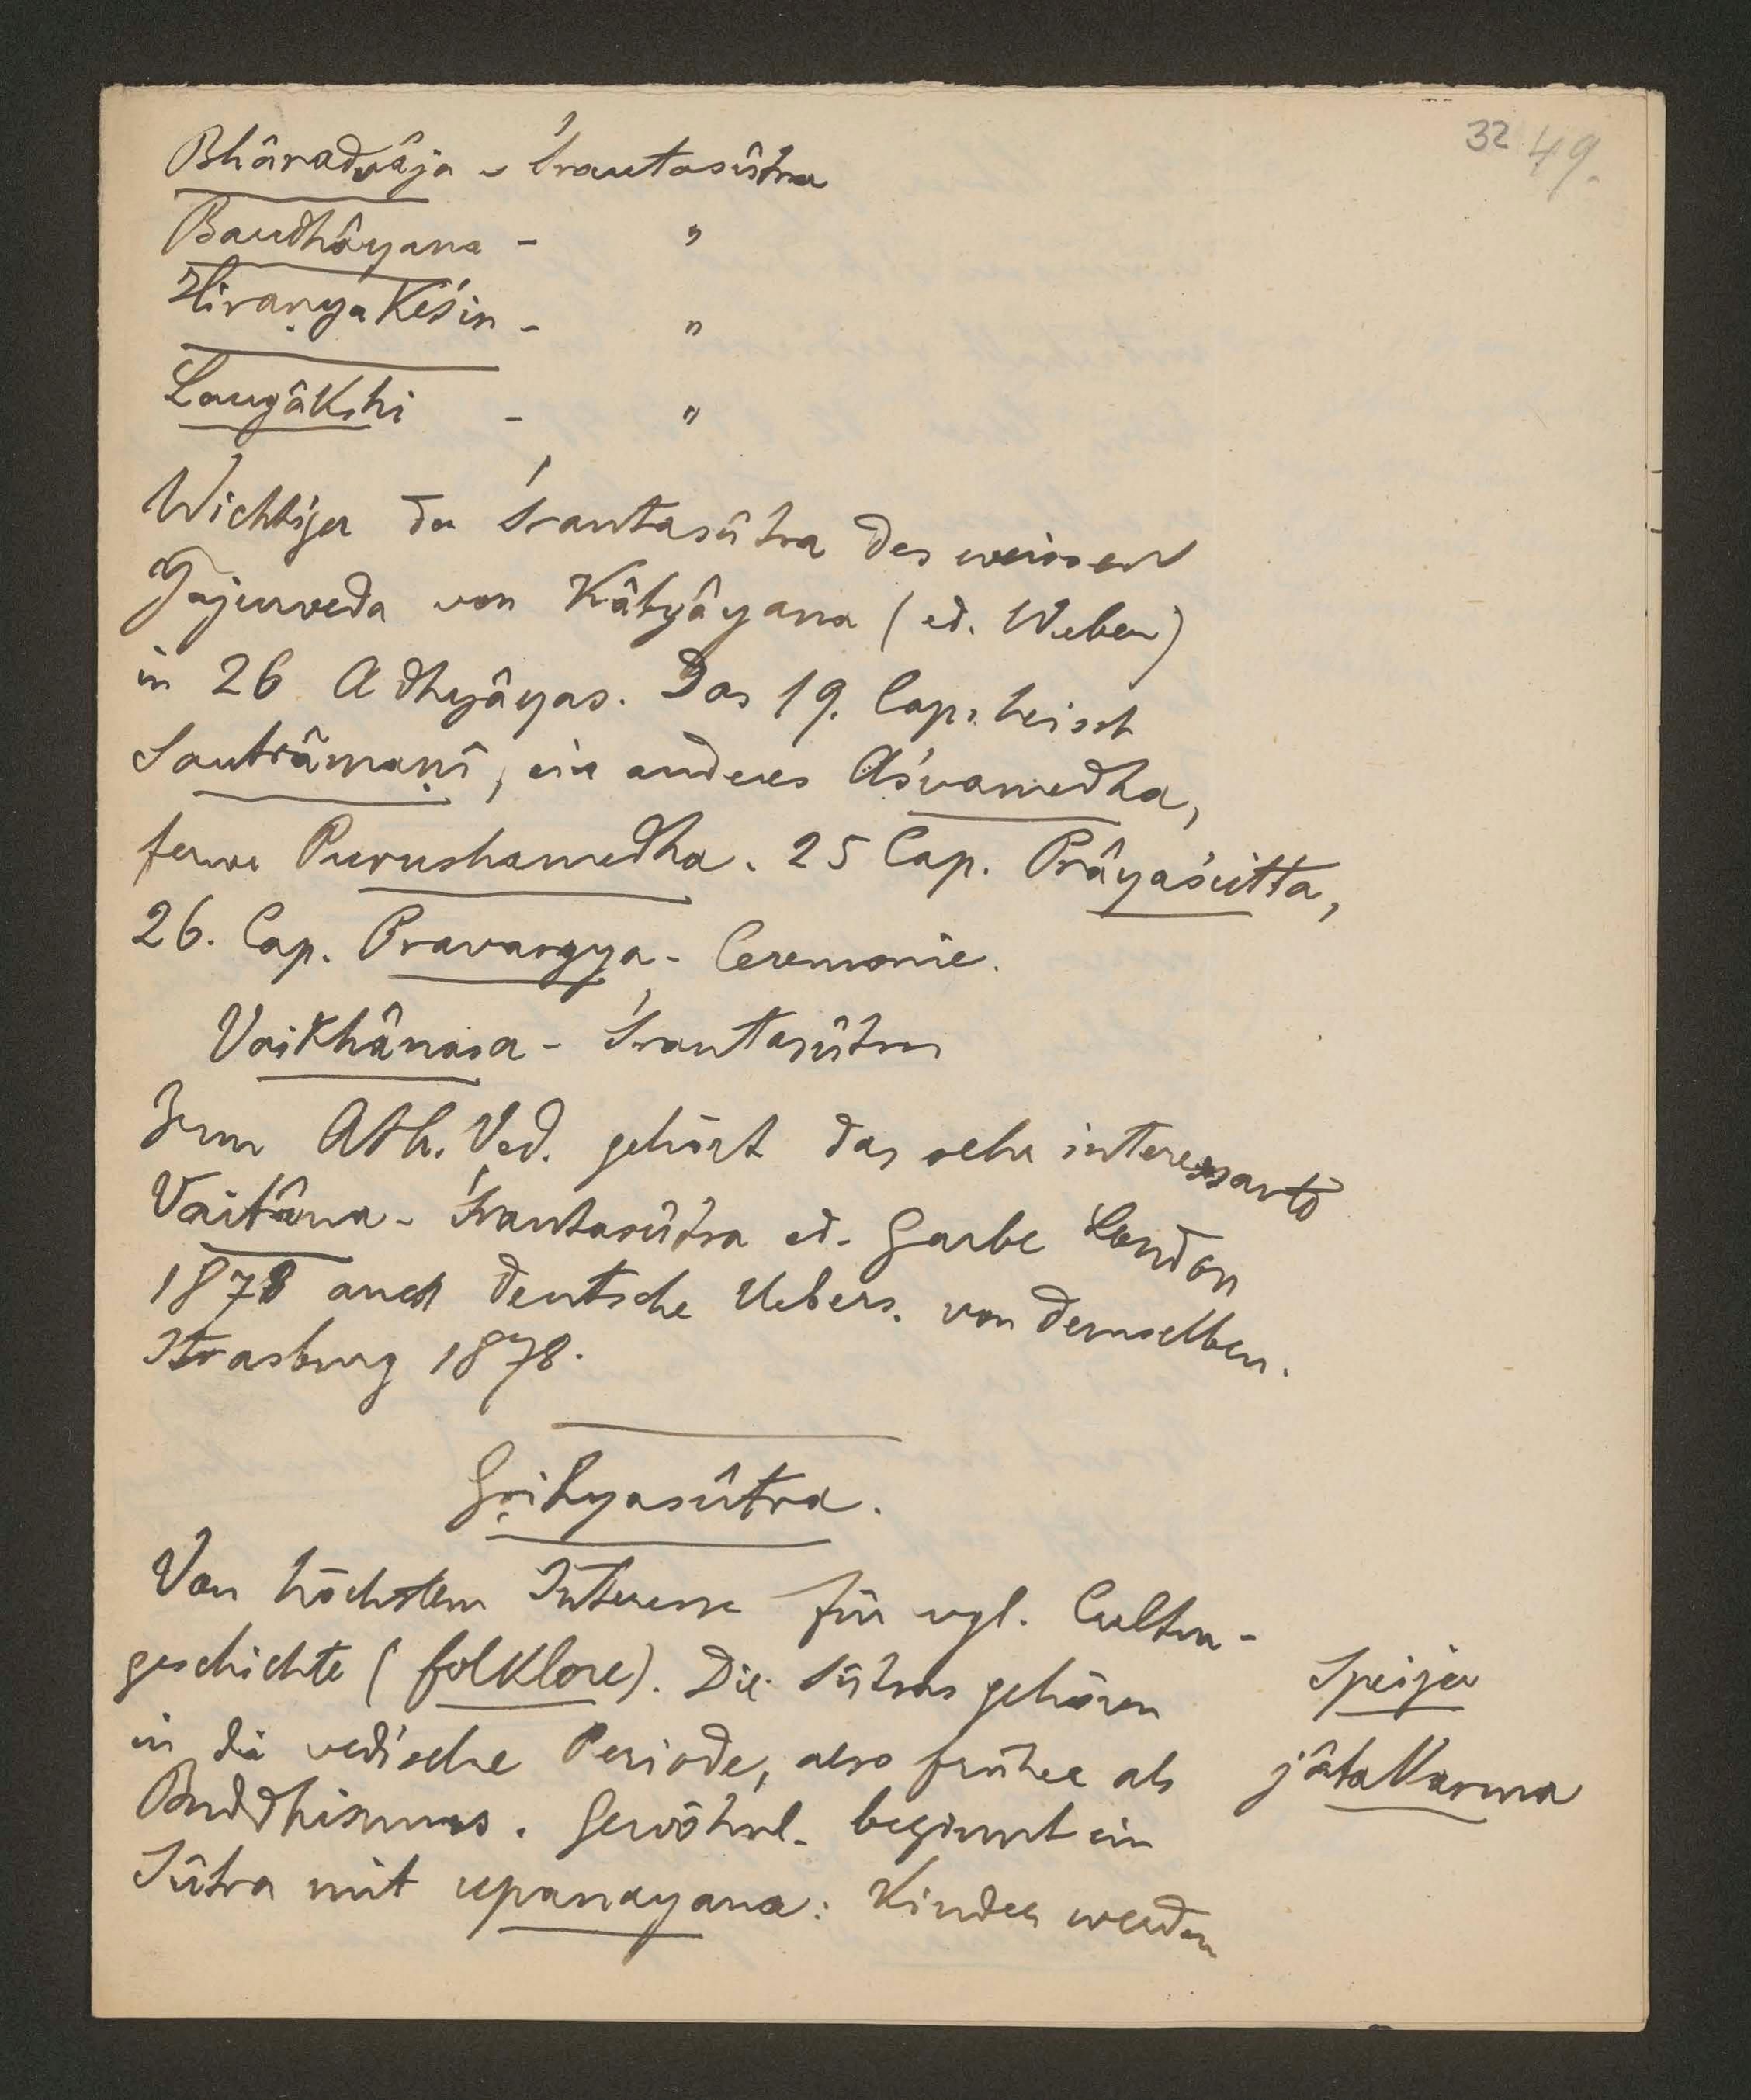 32 49.
Bhâradvâja - Śrautasûtra
Baudhâyana - "
Hiraṇyakeśin - "
Laugâkshi - "
Wichtiger das Śrautasûtra des weissen
Yajurveda von Kâtyâyana (ed. Weber)
in 26 Adhyâyas. Das 19. Cap. heisst
Sautrâmaṇî, ein anderes Aśvamedha,
ferner Purushamedha. 25 Cap. Prâyaścitta,
26. Cap. Pravargya - Ceremonie.
Vaikhânasa - Śrautasûtra
Zum Ath. Ved. gehört das sehr interessante
Vaitâna - Śrautasûtra ed. Garbe London
1878 auch deutsche Uebers. von demselben.
Strasburg 1878.
Gṛihyasûtra.
Von höchstem Interesse für vgl. Cultur-
geschichte (folklore). Die Sûtras gehören
in die vedische Periode, also früher als
Buddhismus. Gewöhnl. beginnt ein
Sûtra mit upanayana: Kinder werden
Speijer
jâtakarma